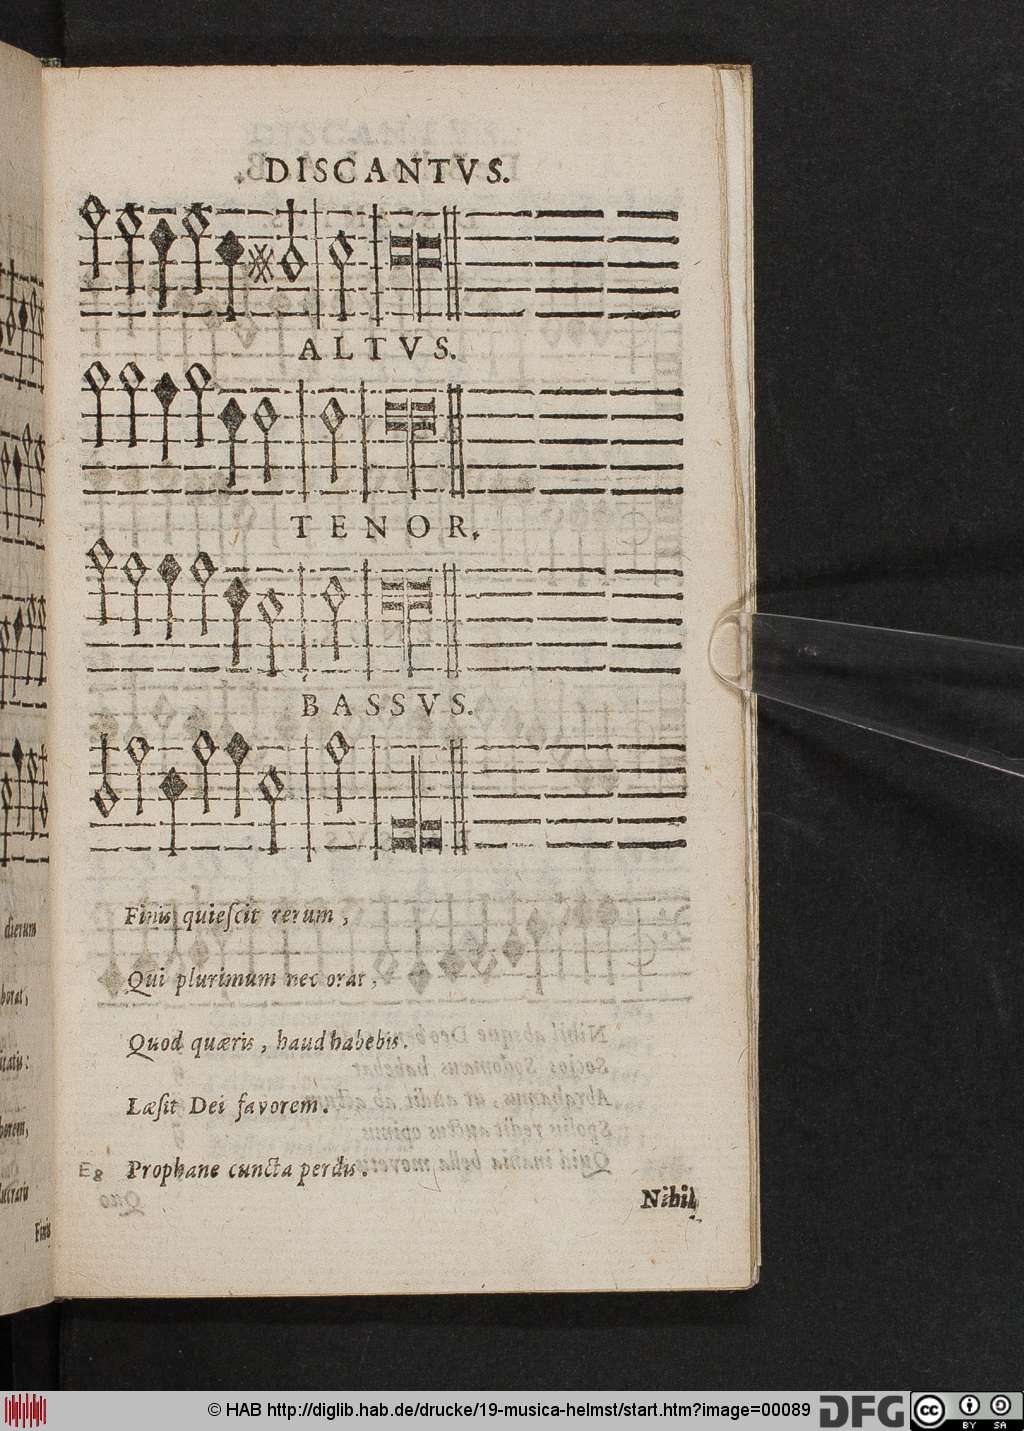 DISCANTVS.
ALTVS.
TENOR.
BASSVS.
Finis quieſcit rerum,
Qui plurimum nec orat,
Quod quæris, haud habebis.
Læſit Dei favorem.
Prophane cuncta perdis.
Nihil
dierum
borat,
Finis
© HAB http://diglib.hab.de/drucke/19-musica-helmst/start.htm?image=00089
DFG
cc BY SA